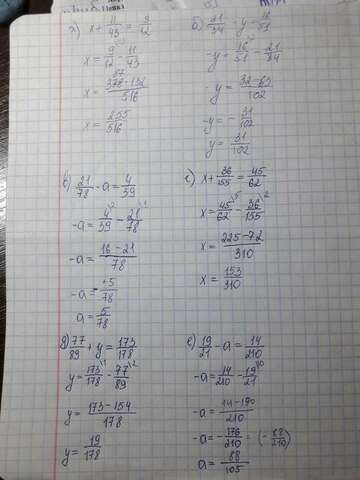 а) x + 11/43 = 9/12
x = 9/12 - 11/43
x = 387-132/516
x = 255/516
б) 21/34 - y = 16/51
-y = 16/51 - 21/34
-y = 32-63/102
-y = -31/102
y = 31/102
в) 21/78 - a = 4/39
-a = 4/39 \2 - 21/78 \1
-a = 16-21/78
-a = -5/78
a = 5/78
г) x + 36/155 = 45/62
x = 45/62 \5 - 36/155 \2
x = 225-72/310
x = 153/310
д) 77/89 + y = 173/178
y = 173/178 \1 - 77/89 \2
y = 173-154/178
y = 19/178
е) 19/21 - a = 14/210
-a = 14/210 - 19/21 \10
-a = 14-190/210
-a = -176/210 = (-88/210)
a = 88/105